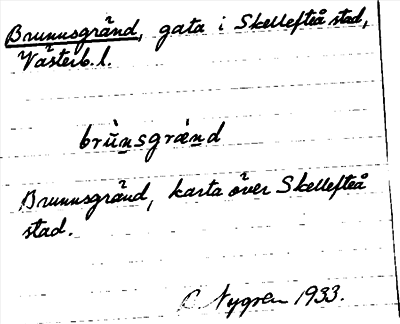 Brunnsgränd, gata i Skellefteå stad,
Västerb. l.
brù̄nsgræ̀nd
Brunnsgränd, karta över Skellefteå
stad.
C Nygren 1933.